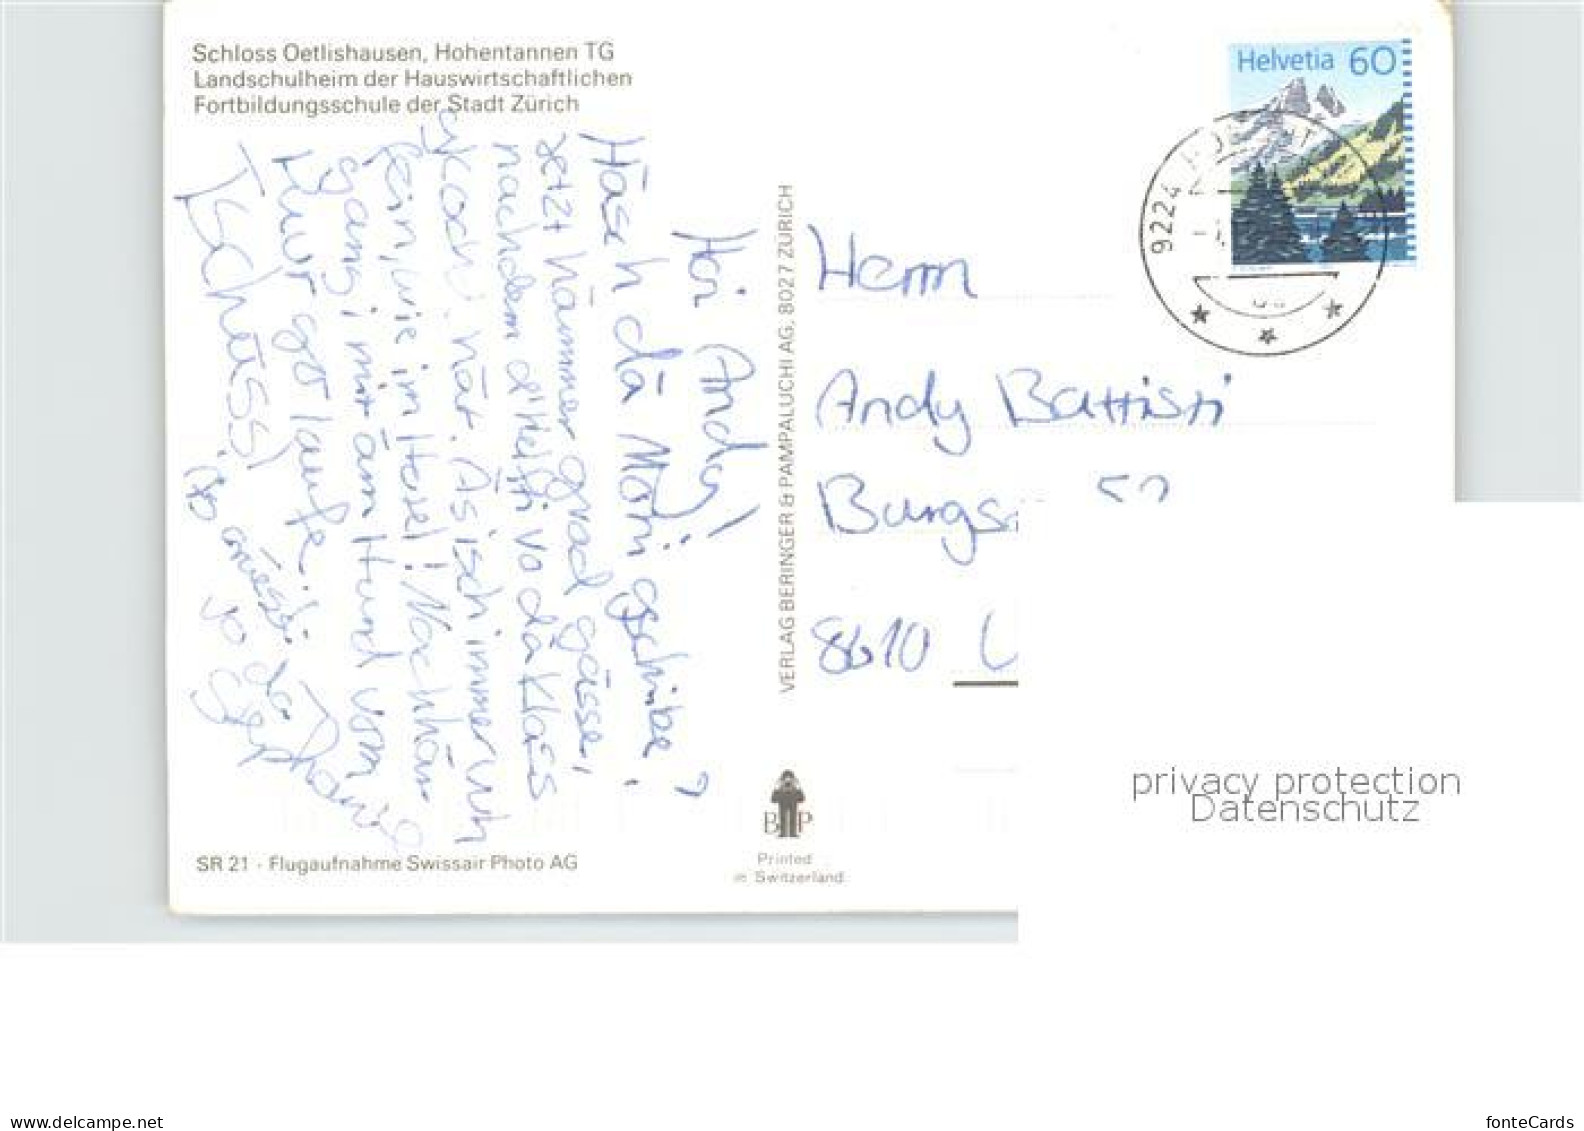 Schloss Oetlishausen, Hohentannen TG
Landschulheim der Hauswirtschaftlichen
Fortbildungsschule der Stadt Zürich
Hoi Andy!
Häsch dä Mari gschribe?
Jetzt hämmer grad gässe,
nachdem d'Helfti vo dä Klass
kocht hät. Äs isch immer uuh
fein, wie im Hotel! Nachhär
gams mit äm Hund vom
go laufe.
Tschüss!
Stephanie
VERLAG BERINGER & PAMPALUCHI AG, 8027 ZÜRICH
Helvetia 60
9224
Herrn
Andy Battisti
8610
privacy protection
Datenschutz
B P
Printed
in Switzerland
SR 21 · Flugaufnahme Swissair Photo AG
www.delcampe.net
fonteCards